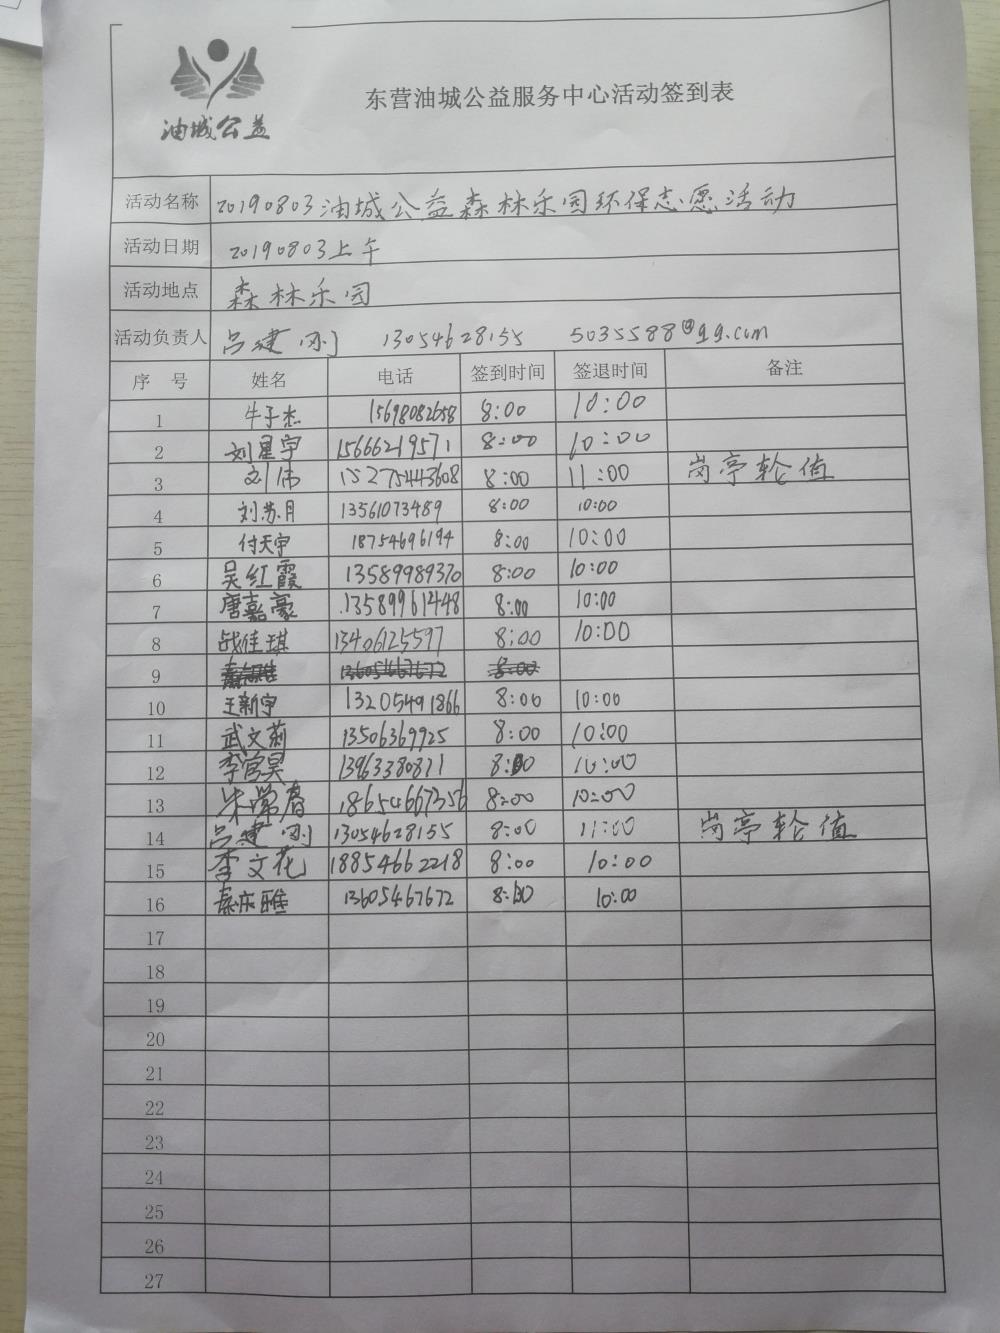 油城公益
东营油城公益服务中心活动签到表
活动名称 20190803油城公益森林乐园环保志愿活动
活动日期 20190803上午
活动地点 森林乐园
活动负责人 吕建刚 13054628155 5035588@qq.com
序号 姓名 电话 签到时间 签退时间 备注
1 牛子杰 15698082658 8:00 10:00
2 刘星宇 15666219571 8:00 10:00
3 刘伟 15275443608 8:00 11:00 岗亭轮值
4 刘苏月 13561073489 8:00 10:00
5 付天宇 18754696194 8:00 10:00
6 吴红霞 13589989370 8:00 10:00
7 唐嘉豪 13589961448 8:00 10:00
8 战佳琪 13406125597 8:00 10:00
9 13605467672 8:00
10 王新宇 13205491866 8:00 10:00
11 武文莉 13506369925 8:00 10:00
12 李官昊 13963380811 8:00 10:00
13 朱常春 18654667356 8:00 10:00
14 吕建刚 13054628155 8:00 11:00 岗亭轮值
15 李文花 18854662218 8:00 10:00
16 秦亦雅 13605467672 8:00 10:00
17
18
19
20
21
22
23
24
25
26
27